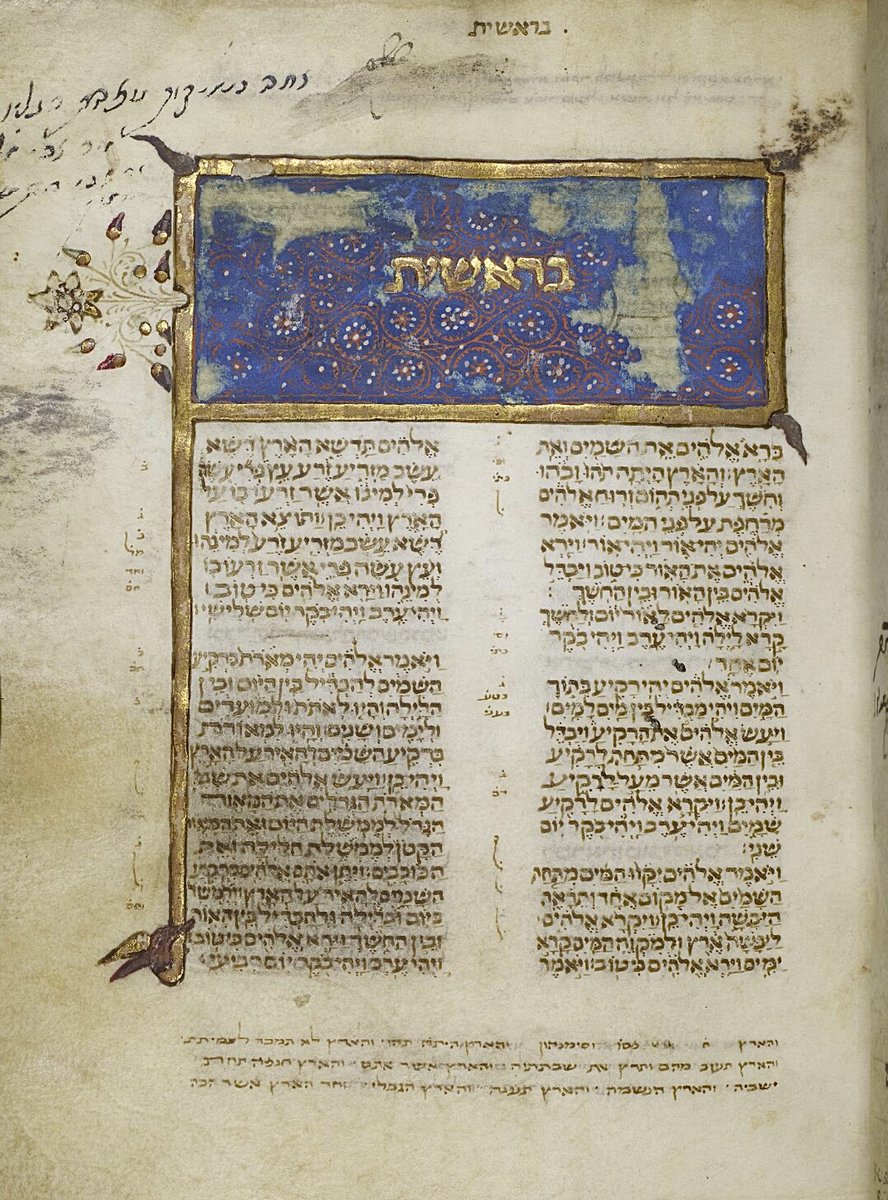 בראשית
בראשית
ברא אלהים את השמים ואת
הארץ׃ והארץ היתה תהו ובהו
וחשך על פני תהום ורוח אלהים
מרחפת על פני המים׃ ויאמר
אלהים יהי אור ויהי אור׃ וירא
אלהים את האור כי טוב ויבדל
אלהים בין האור ובין החשך׃
ויקרא אלהים לאור יום ולחשך
קרא לילה ויהי ערב ויהי בקר
יום אחד׃
ויאמר אלהים יהי רקיע בתוך
המים ויהי מבדיל בין מים למים׃
ויעש אלהים את הרקיע ויבדל
בין המים אשר מתחת לרקיע
ובין המים אשר מעל לרקיע
ויהי כן׃ ויקרא אלהים לרקיע
שמים ויהי ערב ויהי בקר יום
שני׃
ויאמר אלהים יקוו המים מתחת
השמים אל מקום אחד ותראה
היבשה ויהי כן׃ ויקרא אלהים
ליבשה ארץ ולמקוה המים קרא
ימים וירא אלהים כי טוב׃ ויאמר
אלהים תדשא הארץ דשא
עשב מזריע זרע עץ פרי עשה
פרי למינו אשר זרעו בו על
הארץ ויהי כן׃ ותוצא הארץ
דשא עשב מזריע זרע למינהו
ועץ עשה פרי אשר זרעו בו
למינהו וירא אלהים כי טוב׃
ויהי ערב ויהי בקר יום שלישי
ויאמר אלהים יהי מארת ברקיע
השמים להבדיל בין היום ובין
הלילה והיו לאתת ולמועדים
ולימים ושנים׃ והיו למאורת
ברקיע השמים להאיר על הארץ
ויהי כן׃ ויעש אלהים את שני
המארת הגדלים את המאור
הגדל לממשלת היום ואת המאו
הקטן לממשלת הלילה ואת
הכוכבים׃ ויתן אתם אלהים ברקיע
השמים להאיר על הארץ׃ ולמשל
ביום ובלילה ולהבדיל בין האור
ובין החשך וירא אלהים כי טוב׃
ויהי ערב ויהי בקר יום רביעי׃
והארץ וסימנהון והארץ היתה תהו והארץ לא תמכר לצמיתת
והארץ תעזב מהם ותרץ את שבתתיה והארץ אשר אתם והארץ חנפה תחת
ישביה והארץ הנשמה והארץ תענה והארץ הגבלי הארץ אשר הכה